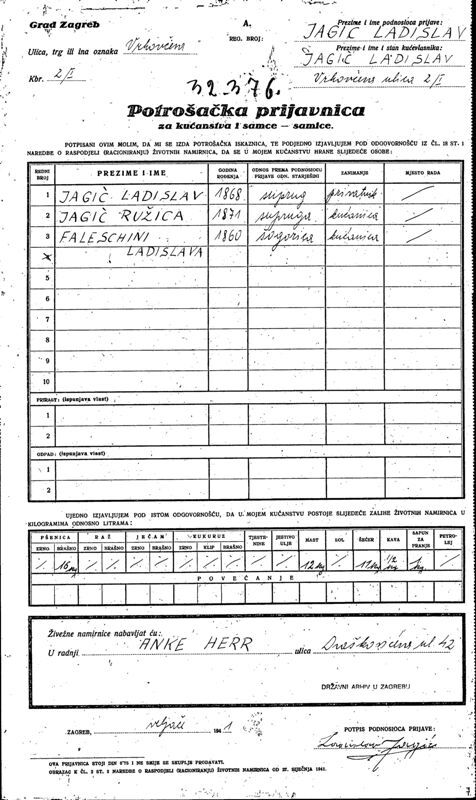 Grad Zagreb
A.
REG. BROJ:
Prezime i ime podnosioca prijave:
JAGIĆ LADISLAV
Prezime i ime i stan kućevlasnika:
JAGIĆ LADISLAV
Vrhovčeva ulica 2/I
Ulica, trg ili ina oznaka Vrhovčeva
Kbr. 2/I
32.376.
Potrošačka prijavnica
za kućanstva i samce — samice.
POTPISANI OVIM MOLIM, DA MI SE IZDA POTROŠAČKA ISKAZNICA, TE PODJEDNO IZJAVLJUJEM POD ODGOVORNOŠĆU IZ ČL. 18 ST. 1
NAREDBE O RASPODJELI (RACIONIRANJU) ŽIVOTNIH NAMIRNICA, DA SE U MOJEM KUĆANSTVU HRANE SLIJEDEĆE OSOBE:
REDNI BROJ PREZIME I IME GODINA ROĐENJA ODNOS PREMA PODNOSIOCU PRIJAVE ODN. STARJEŠINI ZANIMANJE MJESTO RADA
1 JAGIĆ LADISLAV 1868 suprug privatnik /
2 JAGIĆ RUŽICA 1871 supruga kućanica /
3 FALESCHINI 1860 kućanica /
LADISLAVA
5
6
7
8
9
10
PRIRAST: (ispunjava vlast)
1
2
OTPAD: (ispunjava vlast)
1
2
UJEDNO IZJAVLJUJEM POD ISTOM ODGOVORNOŠĆU, DA U MOJEM KUĆANSTVU POSTOJE SLIJEDEĆE ZALIHE ŽIVOTNIH NAMIRNICA U
KILOGRAMIMA ODNOSNO LITRAMA:
PŠENICA RAŽ JEČAM KUKURUZ TJESTENINE JESTIVO ULJE MAST SOL ŠEĆER KAVA SAPUN ZA PRANJE PETROLEJ
ZRNO BRAŠNO ZRNO BRAŠNO ZRNO BRAŠNO ZRNO KLIP BRAŠNO
16 kg 12 kg 1/2 kg
POVEĆANJE
Živežne namirnice nabavljat ću:
U radnji ANKE HERR ulica Draškovićeva ul 42
DRŽAVNI ARHIV U ZAGREBU
ZAGREB, veljače 1941
POTPIS PODNOSIOCA PRIJAVE:
Ladislav Jagić
OVA PRIJAVNICA STOJI DIN 0'75 I NE SMIJE SE SKUPLJE PRODAVATI.
OBRAZAC K ČL. 2 ST. 2 NAREDBE O RASPODJELI (RACIONIRANJU) ŽIVOTNIH NAMIRNICA OD 27. SIJEČNJA 1941.